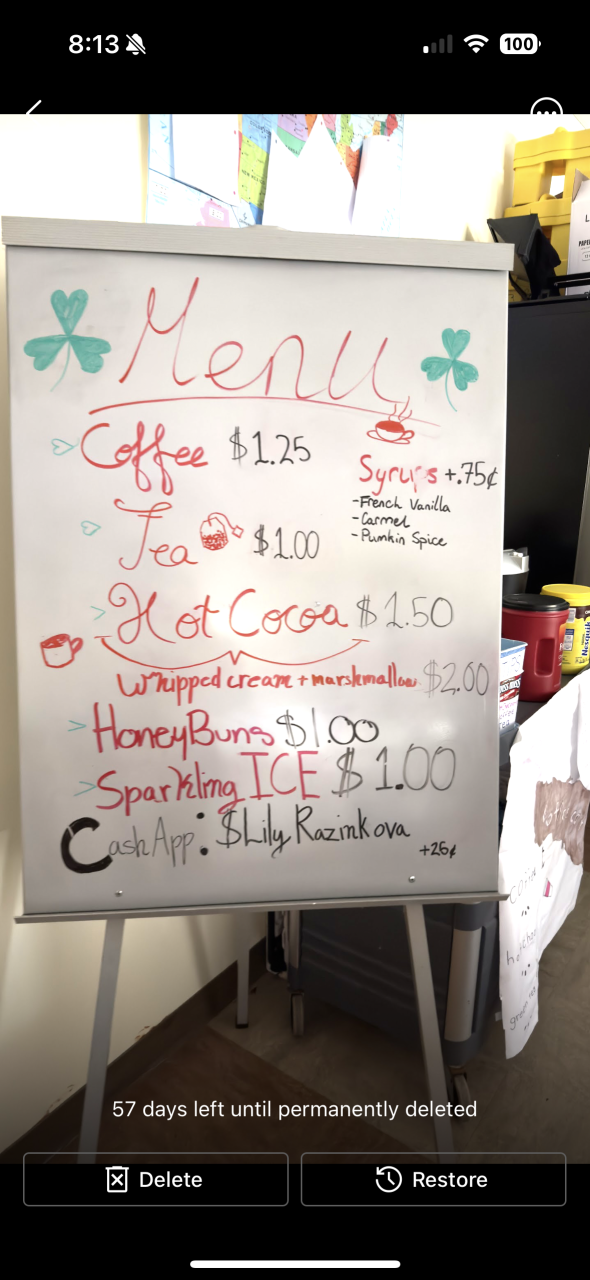 8:13
100
NEW MEXICO
Menu
Coffee $1.25
Syrups +.75¢
-French Vanilla
-Carmel
-Pumkin Spice
Tea $1.00
Hot Cocoa $1.50
Whipped cream + marshmallow $2.00
HoneyBuns $1.00
Sparkling ICE $1.00
CashApp: $Lily Razinkova
+25¢
Nesquik
57 days left until permanently deleted
Delete
Restore